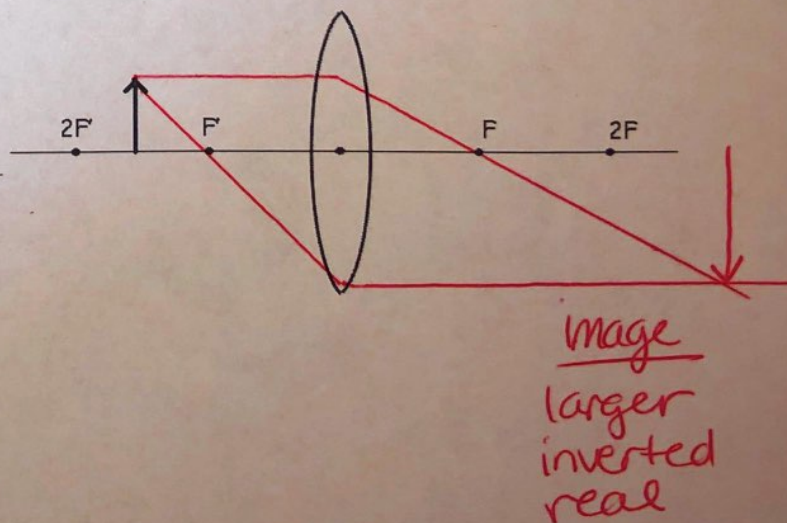 2F' F' F 2F
Image
larger
inverted
real